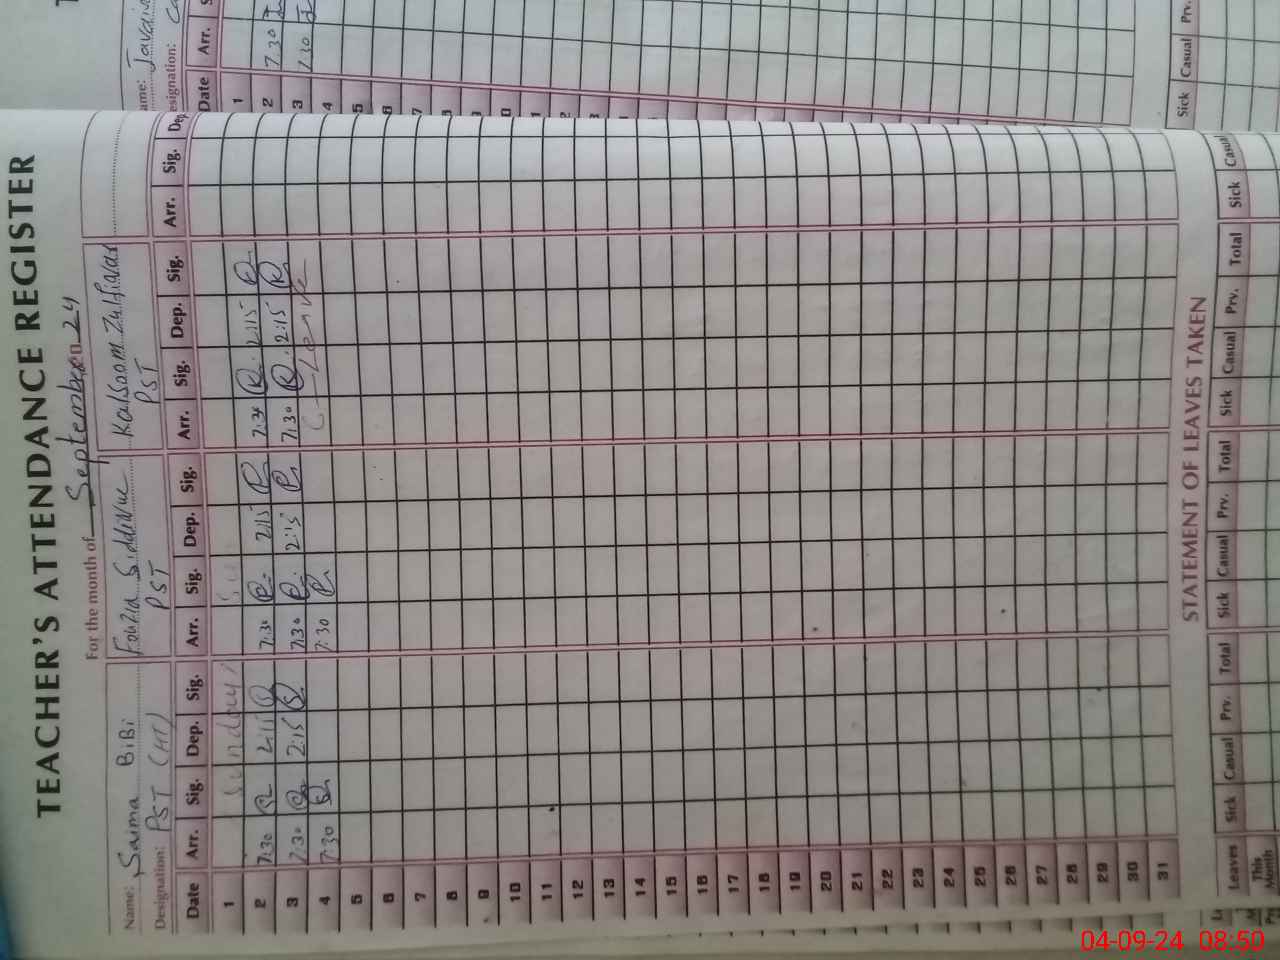 TEACHER'S ATTENDANCE REGISTER
For the month of September 20 24
Name: Saima BiBi Fouzia Siddique Kalsoom Zulfiqar
Designation: PST (HT) PST PST
Date Arr. Sig. Dep. Sig. Arr. Sig. Dep. Sig. Arr. Sig. Dep. Sig. Arr. Sig. Dep.
1 Sunday
2 7:30 2:15 7:30 2:15 7:30 2:15
3 7:30 2:15 7:30 2:15 7:30 2:15
4 7:30 7:30 Leave
5
6
7
8
9
10
11
12
13
14
15
16
17
18
19
20
21
22
23
24
25
26
27
28
29
30
31
STATEMENT OF LEAVES TAKEN
Leaves Sick Casual Prv. Total Sick Casual Prv. Total Sick Casual Prv. Total Sick Casual
This Month
ame: Javai
esignation:
Date Arr.
1
2 7.30
3 7.30
4
5
6
7
8
9
10
Sick Casual Prv.
04-09-24 08:50